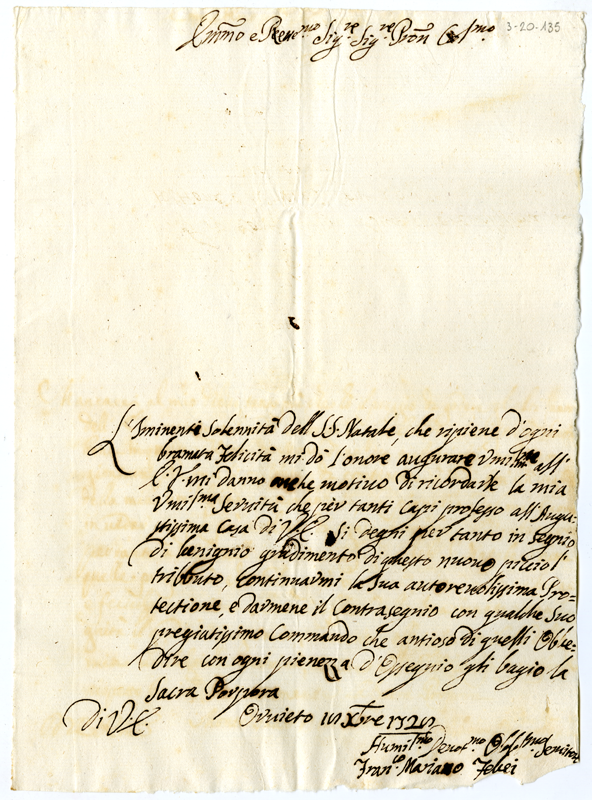 Em̃o e Rev.mo Sig.re Sig.re Pron̄ Col.mo
3-20-135
L'Iminente Solennità dell SS. Natale, che ripiene d'ogni
bramata Felicità mi dò l'onore augurare Vmil.te all'
E.V. mi danno anche motivo di ricordarle la mia
Vmil.ma Servità che per tanti Capi professo all'Augu-
stissima Casa di V.E. Si degni per tanto in Segnio
di benignio gradimento di questo nuovo picciol
tributo, continuarmi la Sua autorevolissima Pro=
tectione, e darmene il Contrasegnio con qualche Suo
pregiatissimo Commando che antioso di quelli Obbe=
dire con ogni pienezza d'Ossequio gli bagio la
Sacra Porpora
Di V.E. Orvieto Xbre
Humil.mo Devot.mo Obbl.mo Servitore
Fran.co Mariano Febei